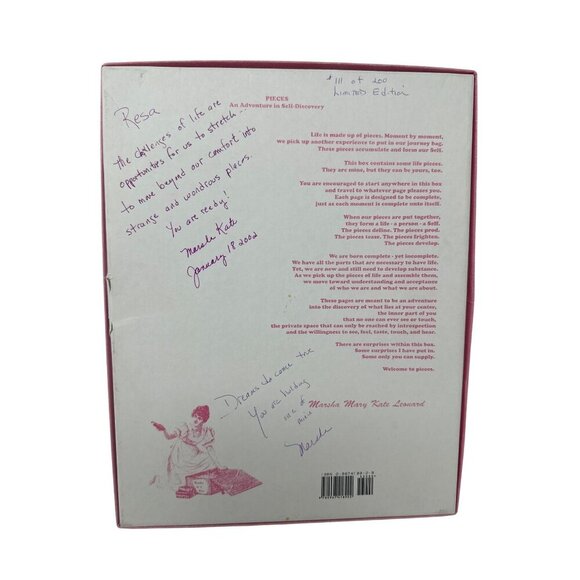 #111 of 200
Limited Edition
PIECES
An Adventure in Self-Discovery
Resa
The challenges of life are
opportunities for us to stretch -
to move beyond our comfort into
strange and wondrous places.
You are ready!
Marsha Kate
January 18 2002
Life is made up of pieces. Moment by moment,
we pick up another experience to put in our journey bag.
These pieces accumulate and form our Self.
This box contains some life pieces.
They are mine, but they can be yours, too.
You are encouraged to start anywhere in this box
and travel to whatever page pleases you.
Each page is designed to be complete,
just as each moment is complete unto itself.
When our pieces are put together,
they form a life - a person - a Self.
The pieces define. The pieces prod.
The pieces tease. The pieces frighten.
The pieces develop.
We are born complete - yet incomplete.
We have all the parts that are necessary to have life.
Yet, we are new and still need to develop substance.
As we pick up the pieces of life and assemble them,
we move toward understanding and acceptance
of who we are and what we are about.
These pages are meant to be an adventure
into the discovery of what lies at your center,
the inner part of you
that no one can ever see or touch,
the private space that can only be reached by introspection
and the willingness to see, feel, taste, touch, and hear.
There are surprises within this box.
Some surprises I have put in.
Some only you can supply.
Welcome to pieces.
Dreams do come true
You are holding
one of
mine
Marsha
Marsha Mary Kate Leonard